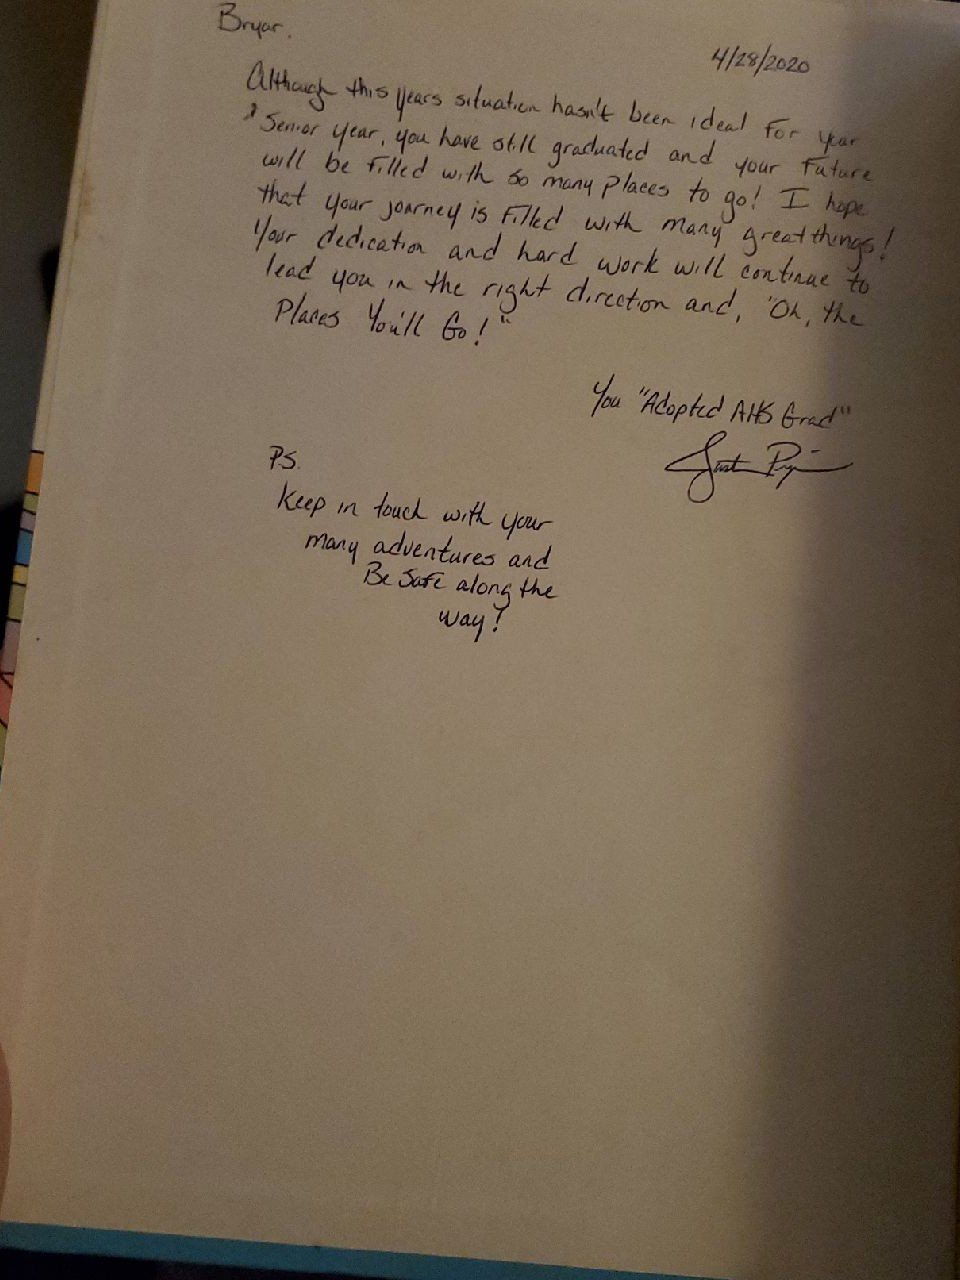 Bryar,
4/28/2020
Although this years situation hasn't been ideal for year
Senior year, you have still graduated and your future
will be filled with so many places to go! I hope
that your journey is filled with many great things!
Your dedication and hard work will continue to
lead you in the right direction and, "Oh, the
Places You'll Go!"
You "Adopted AHS Grad"
P.S.
Keep in touch with your
many adventures and
Be Safe along the
way!